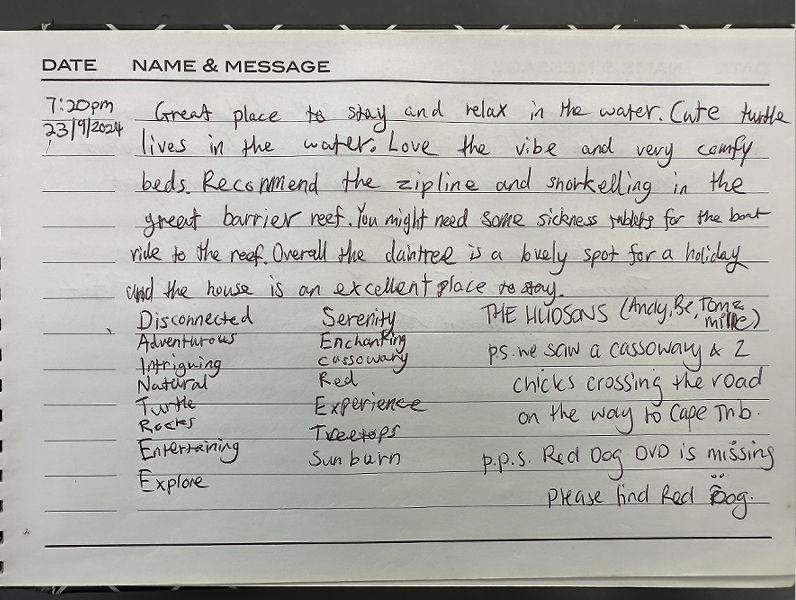 DATE NAME & MESSAGE
7:20pm Great place to stay and relax in the water. Cute turtle
23/9/2024 lives in the water. Love the vibe and very comfy
beds. Recommend the zipline and snorkelling in the
great barrier reef. You might need some sickness tablets for the boat
ride to the reef. Overall the daintree is a lovely spot for a holiday
and the house is an excellent place to stay.
Disconnected
Adventurous
Intriguing
Natural
Turtle
Rocks
Entertaining
Explore
Serenity
Enchanting
cassowary
Red
Experience
Treetops
Sunburn
THE HUDSONS (Andy, Be, Tom &
millie)
p.s. we saw a cassowary & 2
chicks crossing the road
on the way to Cape Trib.
p.p.s. Red Dog DVD is missing
please find Red Dog.